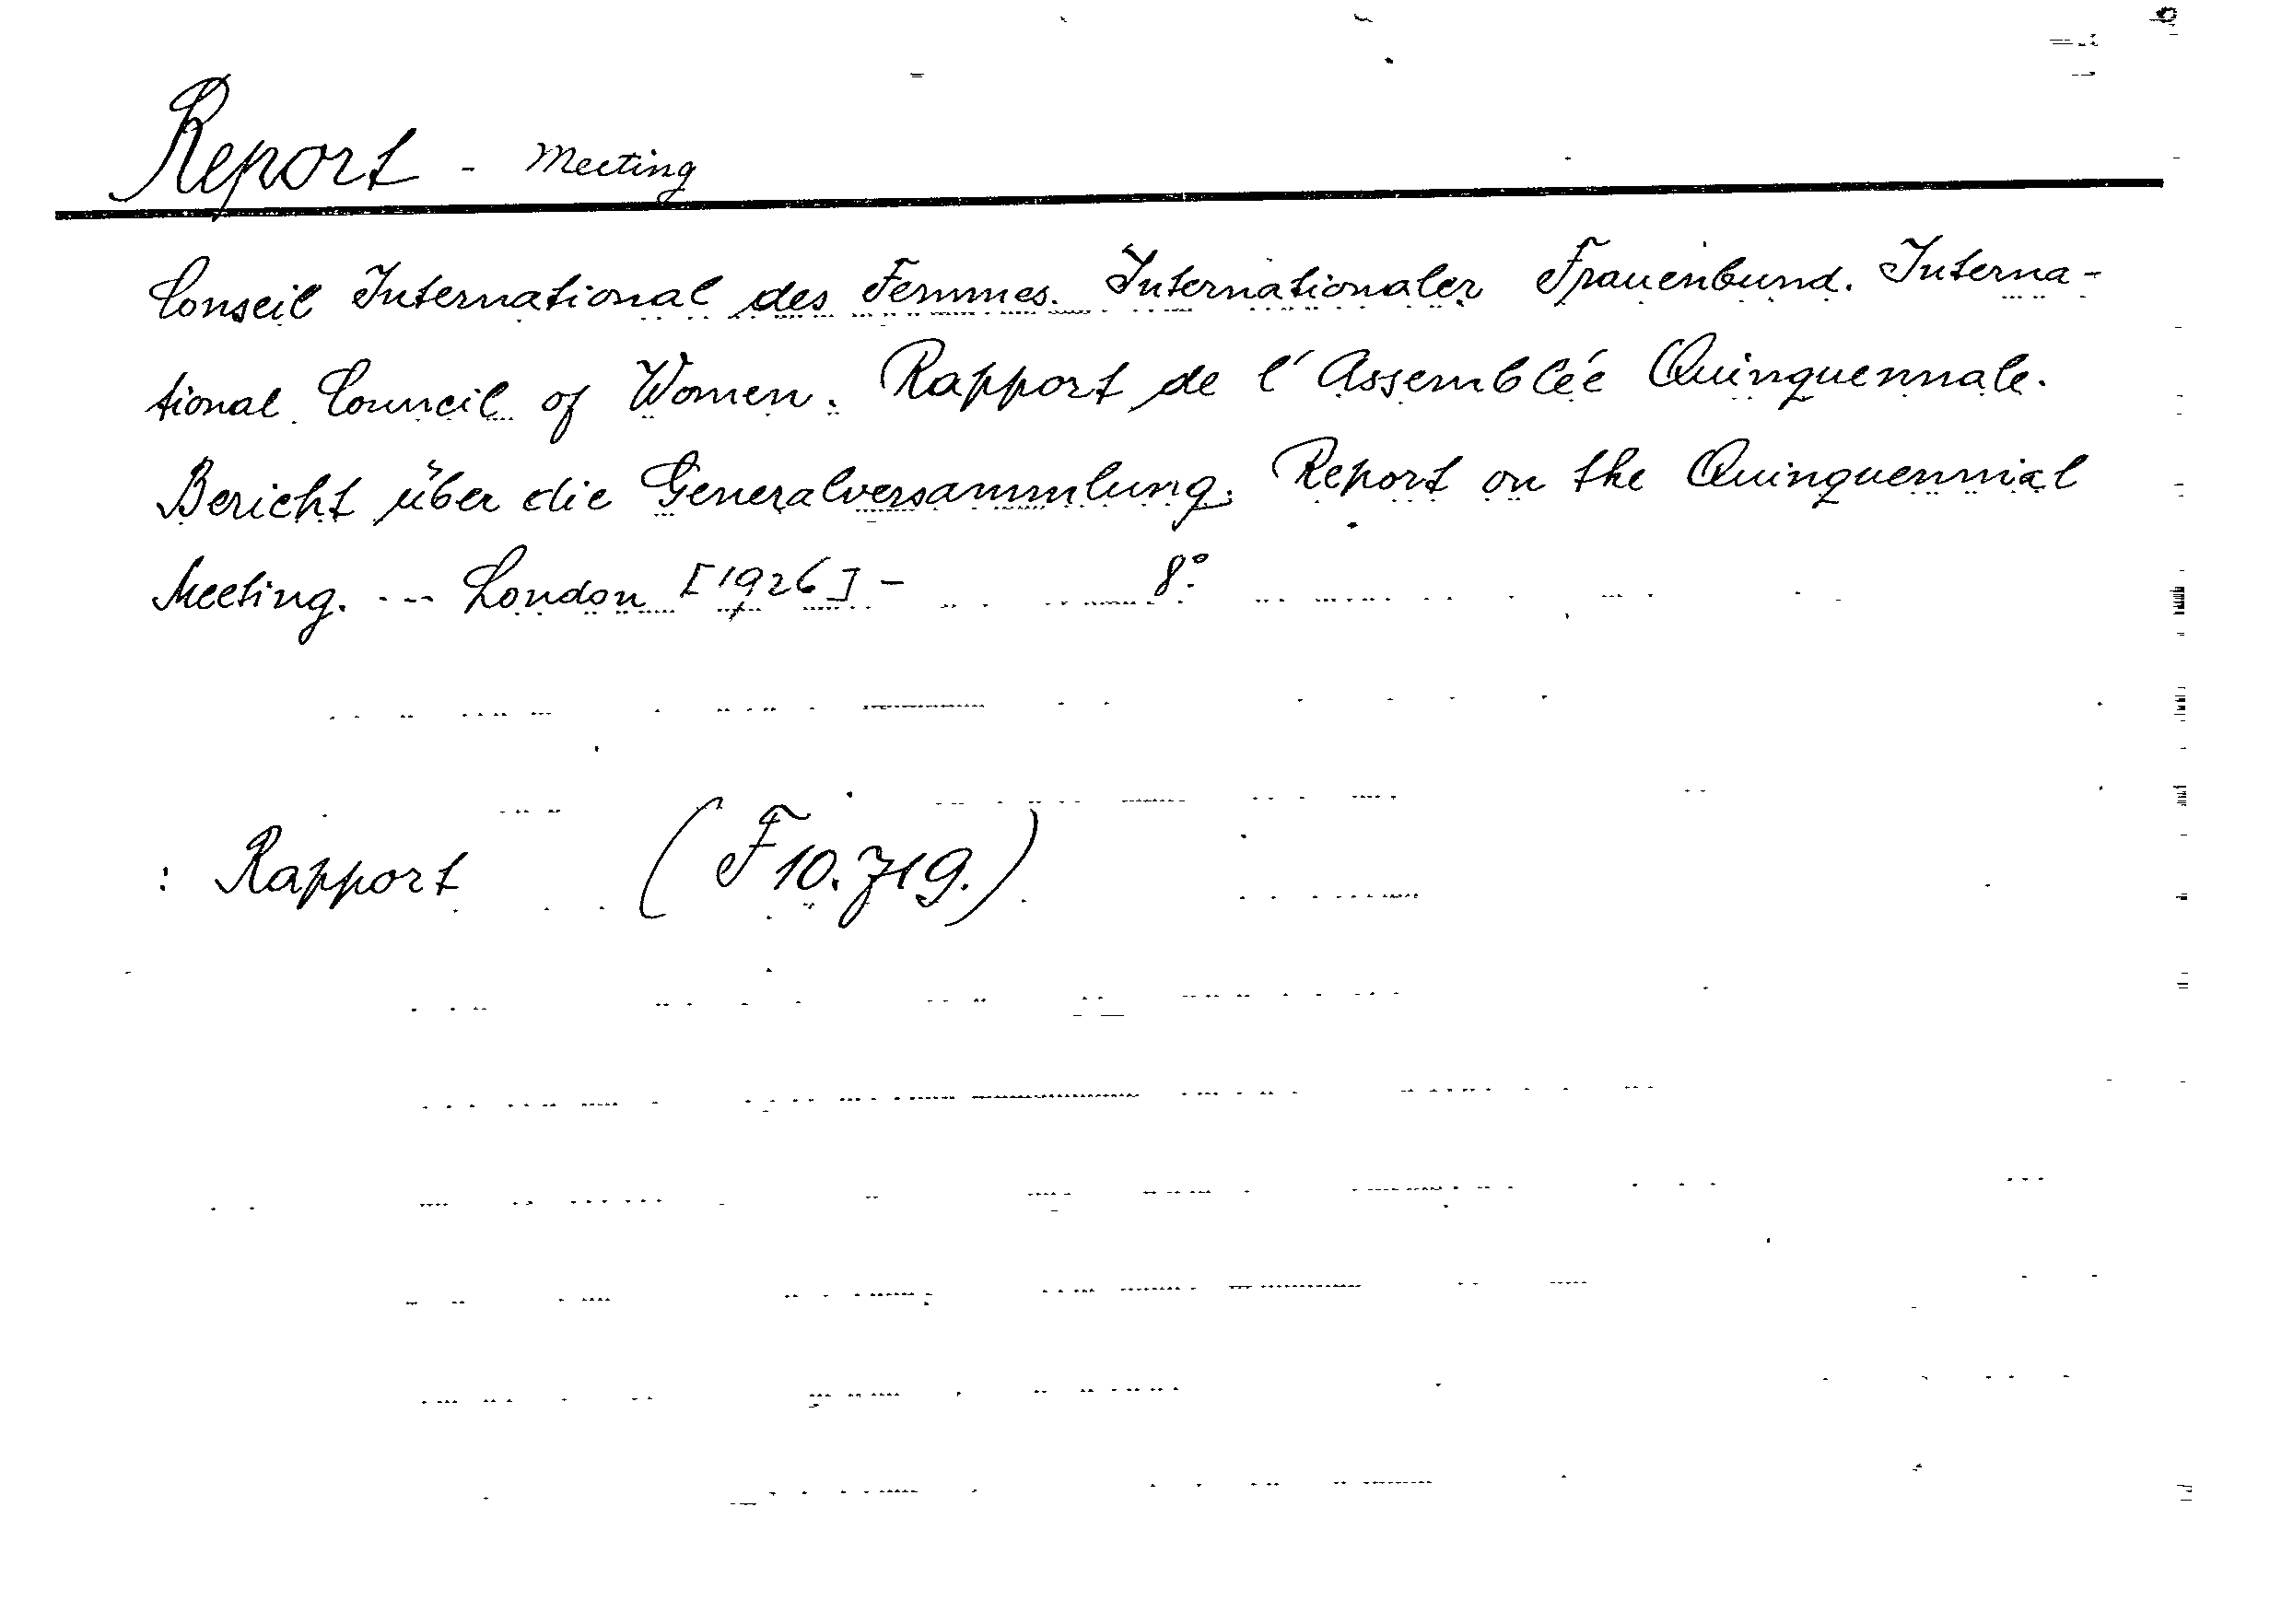 Report - Meeting
Conseil International des Femmes. Internationaler Frauenbund. Interna-
tional Council of Women. Rapport de l'Assemblée Quinquennale.
Bericht über die Generalversammlung. Report on the Quinquennial
Meeting. --- London [1926] - 8°.
: Rapport (F 10.719.)